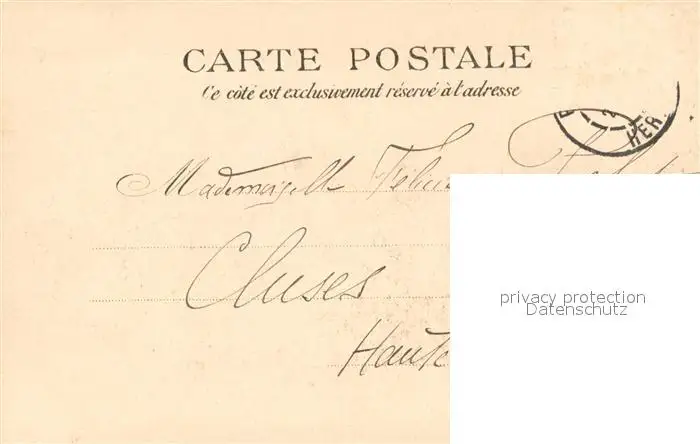 CARTE POSTALE
Ce côté est exclusivement réservé à l'adresse
HER
Mademoiselle
Cluses
Haute
privacy protection
Datenschutz